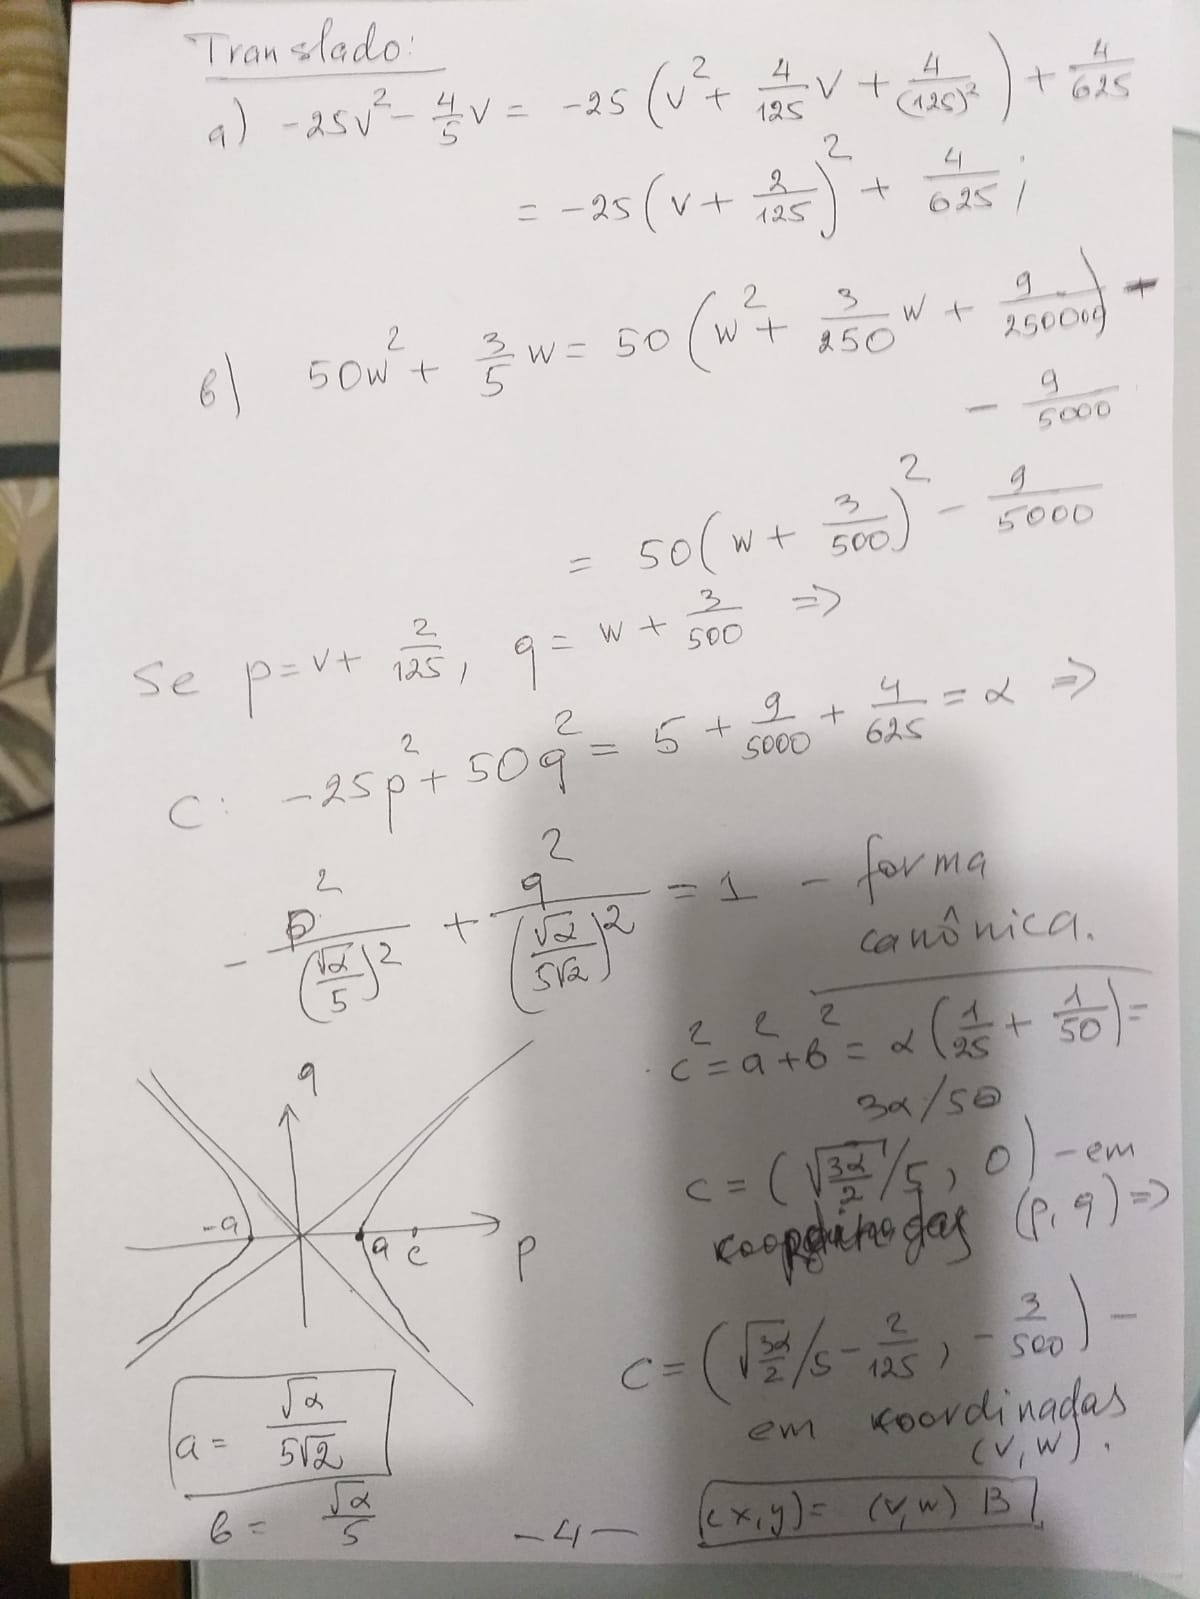 Translado:
a) -25v² - 4/5 v = -25 (v² + 4/125 v + 4/(125)²) + 4/625
= -25 (v + 2/125)² + 4/625 ;
b) 50w² + 3/5 w = 50 (w² + 3/250 w + 9/250000) -
- 9/5000
= 50 (w + 3/500)² - 9/5000
Se p = v + 2/125 , q = w + 3/500 =>
C: -25p² + 50q² = 5 + 9/5000 + 4/625 = α =>
- p²/(√α/5)² + q²/(√α/5√2)² = 1 - forma
canônica.
c² = a² + b² = α (1/25 + 1/50) =
3α/50
q
c = (√(3α/2)/5, 0) - em
koordinadas (p, q) =>
-a a c p
c = (√(3α/2)/5 - 2/125, - 3/500) -
em koordinadas
(v, w).
a = √α/5√2
b = √α/5
-4-
(x, y) = (v, w) B